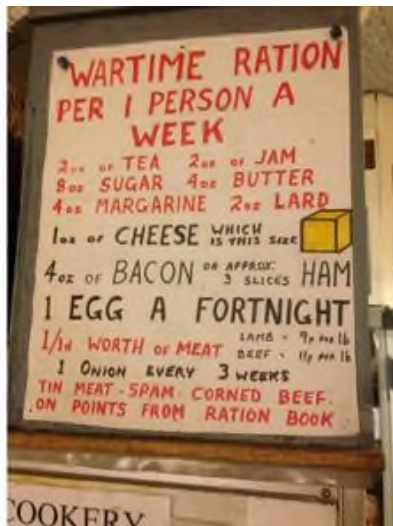 WARTIME RATION
PER 1 PERSON A
WEEK
2oz OF TEA 2oz OF JAM
8oz SUGAR 4oz BUTTER
4oz MARGARINE 2oz LARD
1oz OF CHEESE WHICH IS THIS SIZE
4oz OF BACON OR APPROX: 3 SLICES HAM
1 EGG A FORTNIGHT
1/1d WORTH OF MEAT LAMB - 9p PER lb
BEEF - 11p PER lb
1 ONION EVERY 3 WEEKS
TIN MEAT - SPAM - CORNED BEEF.
ON POINTS FROM RATION BOOK
COOKERY